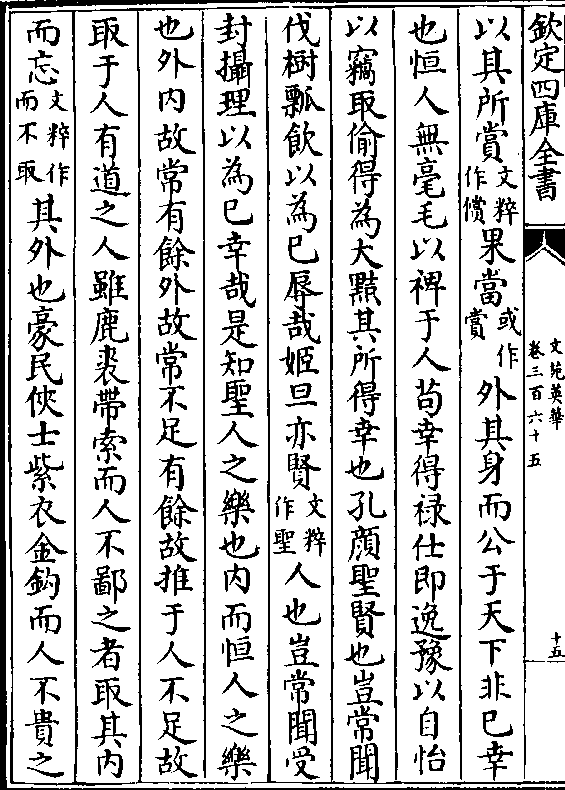 欽定四庫全書
文苑英華
卷三百六十五
十五
以其所賞文粹作償果當或作賞外其身而公于天下非已幸
也恒人無毫毛以裨于人苟幸得禄仕即逸豫以自怡
以竊取偷得為大黠其所得幸也孔顔聖賢也豈常聞
伐樹瓢飲以為已辱哉姬旦亦賢文粹作聖人也豈常聞受
封攝理以為已幸哉是知聖人之樂也内而恒人之樂
也外内故常有餘外故常不足有餘故推于人不足故
取于人有道之人雖鹿裘帶索而人不鄙之者取其内
而忘文粹作而不取其外也豪民俠士紫衣金鈎而人不貴之